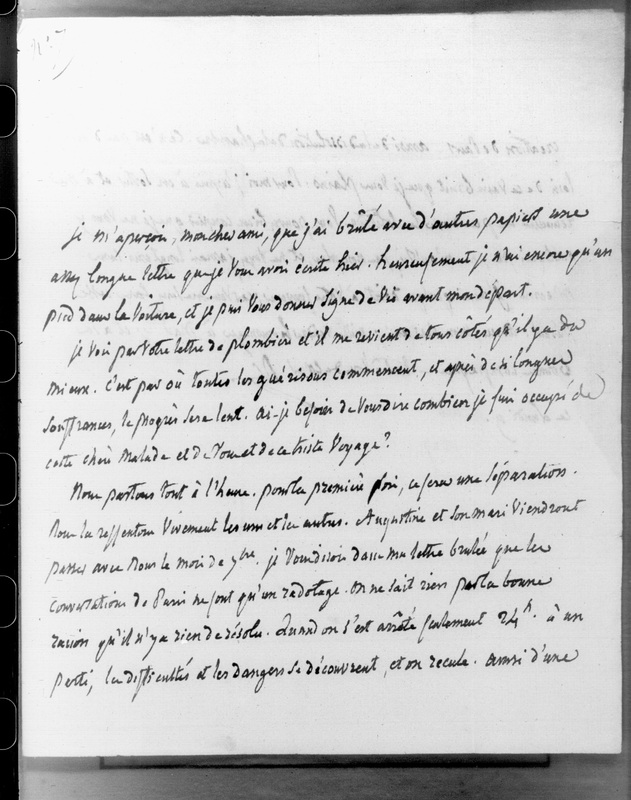 je m'aperçois, mon cher ami, que j'ai brûlé avec d'autres papiers une
assez longue lettre que je vous avois écrite hier. heureusement je n'ai encore qu'un
pied dans la voiture, et je puis vous donner signe de vie avant mon départ.
je vois par votre lettre de plombière et il me revient de tous côtés qu'il y a du
mieux. c'est par où toutes les guérisons commencent, et après de si longues
souffrances, le progrès sera lent. ai-je besoin de vous dire combien je suis occupé de
cette chère malade et de vous et de ce triste voyage?
Nous partons tout à l'heure. pour la première fois, ce sera une séparation.
Nous la ressentons vivement les uns et les autres. Augustine et son mari viendront
passer avec nous le mois de 7bre. je vous disois dans ma lettre brulée que les
conversations de Paris ne sont qu'un radotage. On ne sait rien par la bonne
raison qu'il n'y a rien de résolu. Quand on s'est arrêté seulement 24h. à un
parti, les difficultés et les dangers se découvrent, et on recule. ainsi d'une